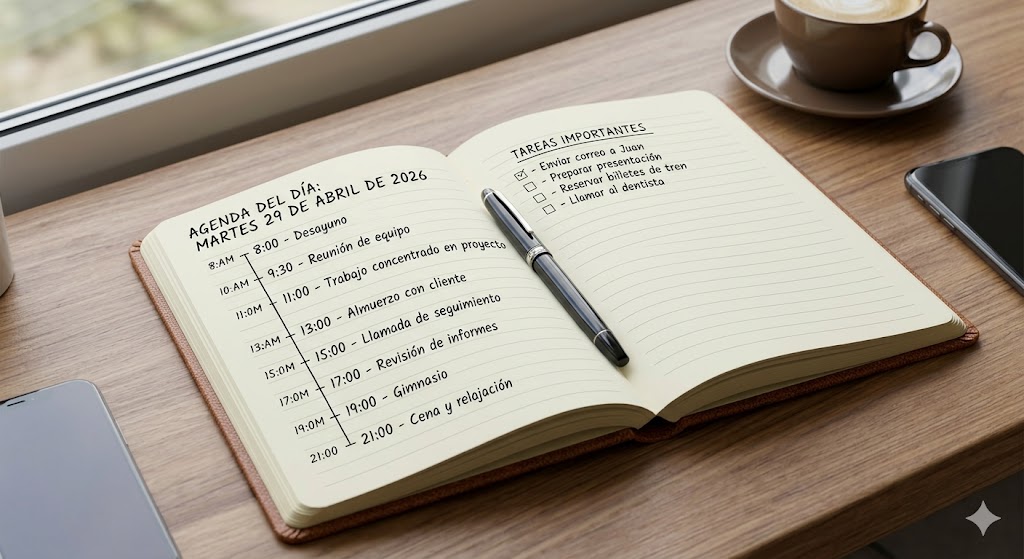 AGENDA DEL DÍA:
MARTES 29 DE ABRIL DE 2026
8:AM 8:00 - Desayuno
10:AM 9:30 - Reunión de equipo
11:0M 11:00 - Trabajo concentrado en proyecto
13:AM 13:00 - Almuerzo con cliente
15:0M 15:00 - Llamada de seguimiento
17:0M 17:00 - Revisión de informes
19:0M 19:00 - Gimnasio
21:00 21:00 - Cena y relajación
TAREAS IMPORTANTES
- Enviar correo a Juan
- Preparar presentación
- Reservar billetes de tren
- Llamar al dentista